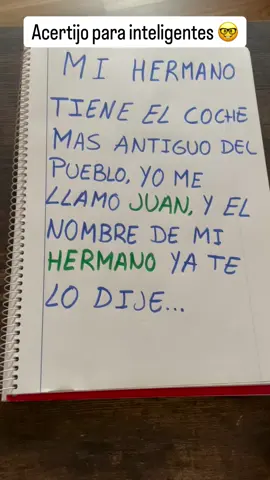 Acertijo para inteligentes 🤓
MI HERMANO
TIENE EL COCHE
MAS ANTIGUO DEL
PUEBLO, YO ME
LLAMO JUAN, Y EL
NOMBRE DE MI
HERMANO YA TE
LO DIJE...